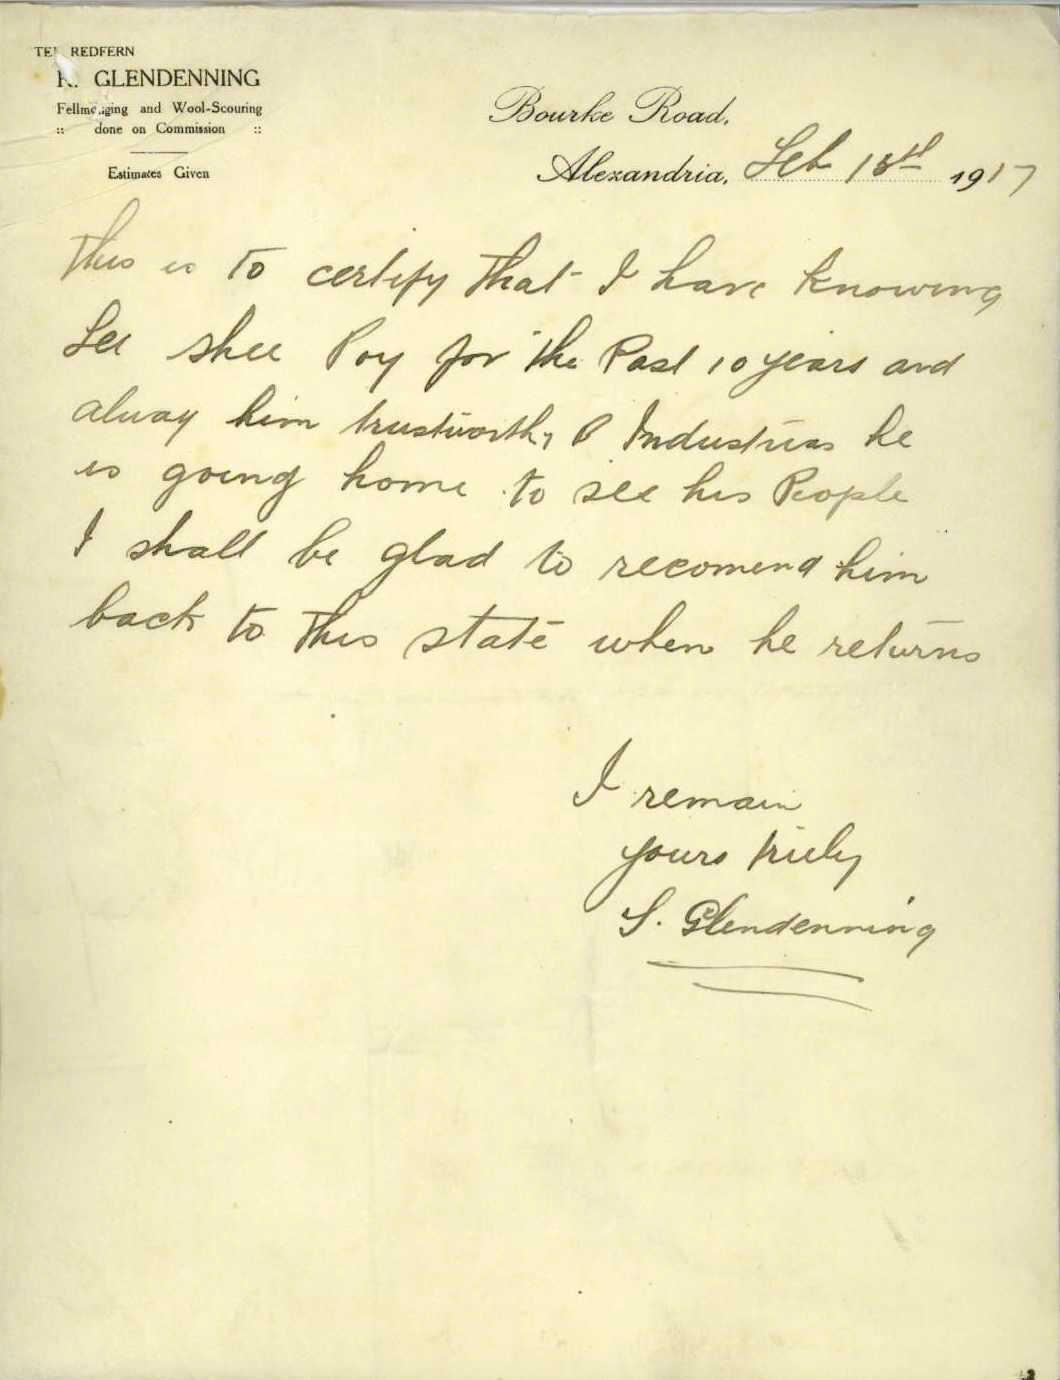 TEL REDFERN
R. GLENDENNING
Fellmonging and Wool-Scouring
:: done on Commission ::
Estimates Given
Bourke Road,
Alexandria, Feb 18th 1917
This is to certify that I have knowing
Lee Shee Poy for the Past 10 years and
alway him trustworthy & Industrias he
is going home to see his People
I shall be glad to recomend him
back to this state when he returns
I remain
yours truly
S. Glendenning